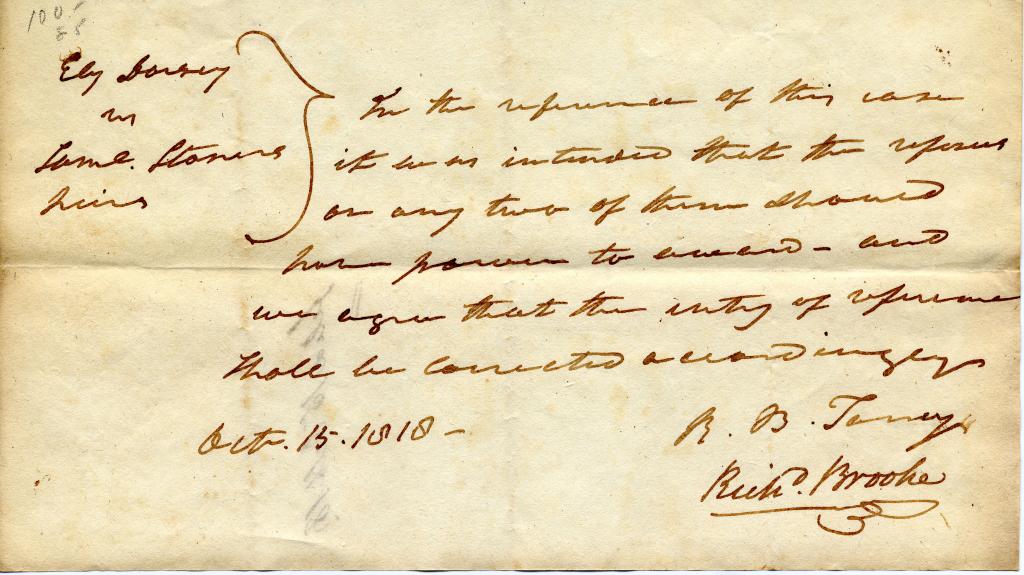 100-
85
Ely Dorsey
vs
Saml. Stoners
heirs
In the reference of this case
it was intended that the referees
or any two of them should
have power to award - and
we agree that the entry of reference
shall be corrected accordingly
Octr. 15. 1818 -
R. B. Taney
Richd. Brooke